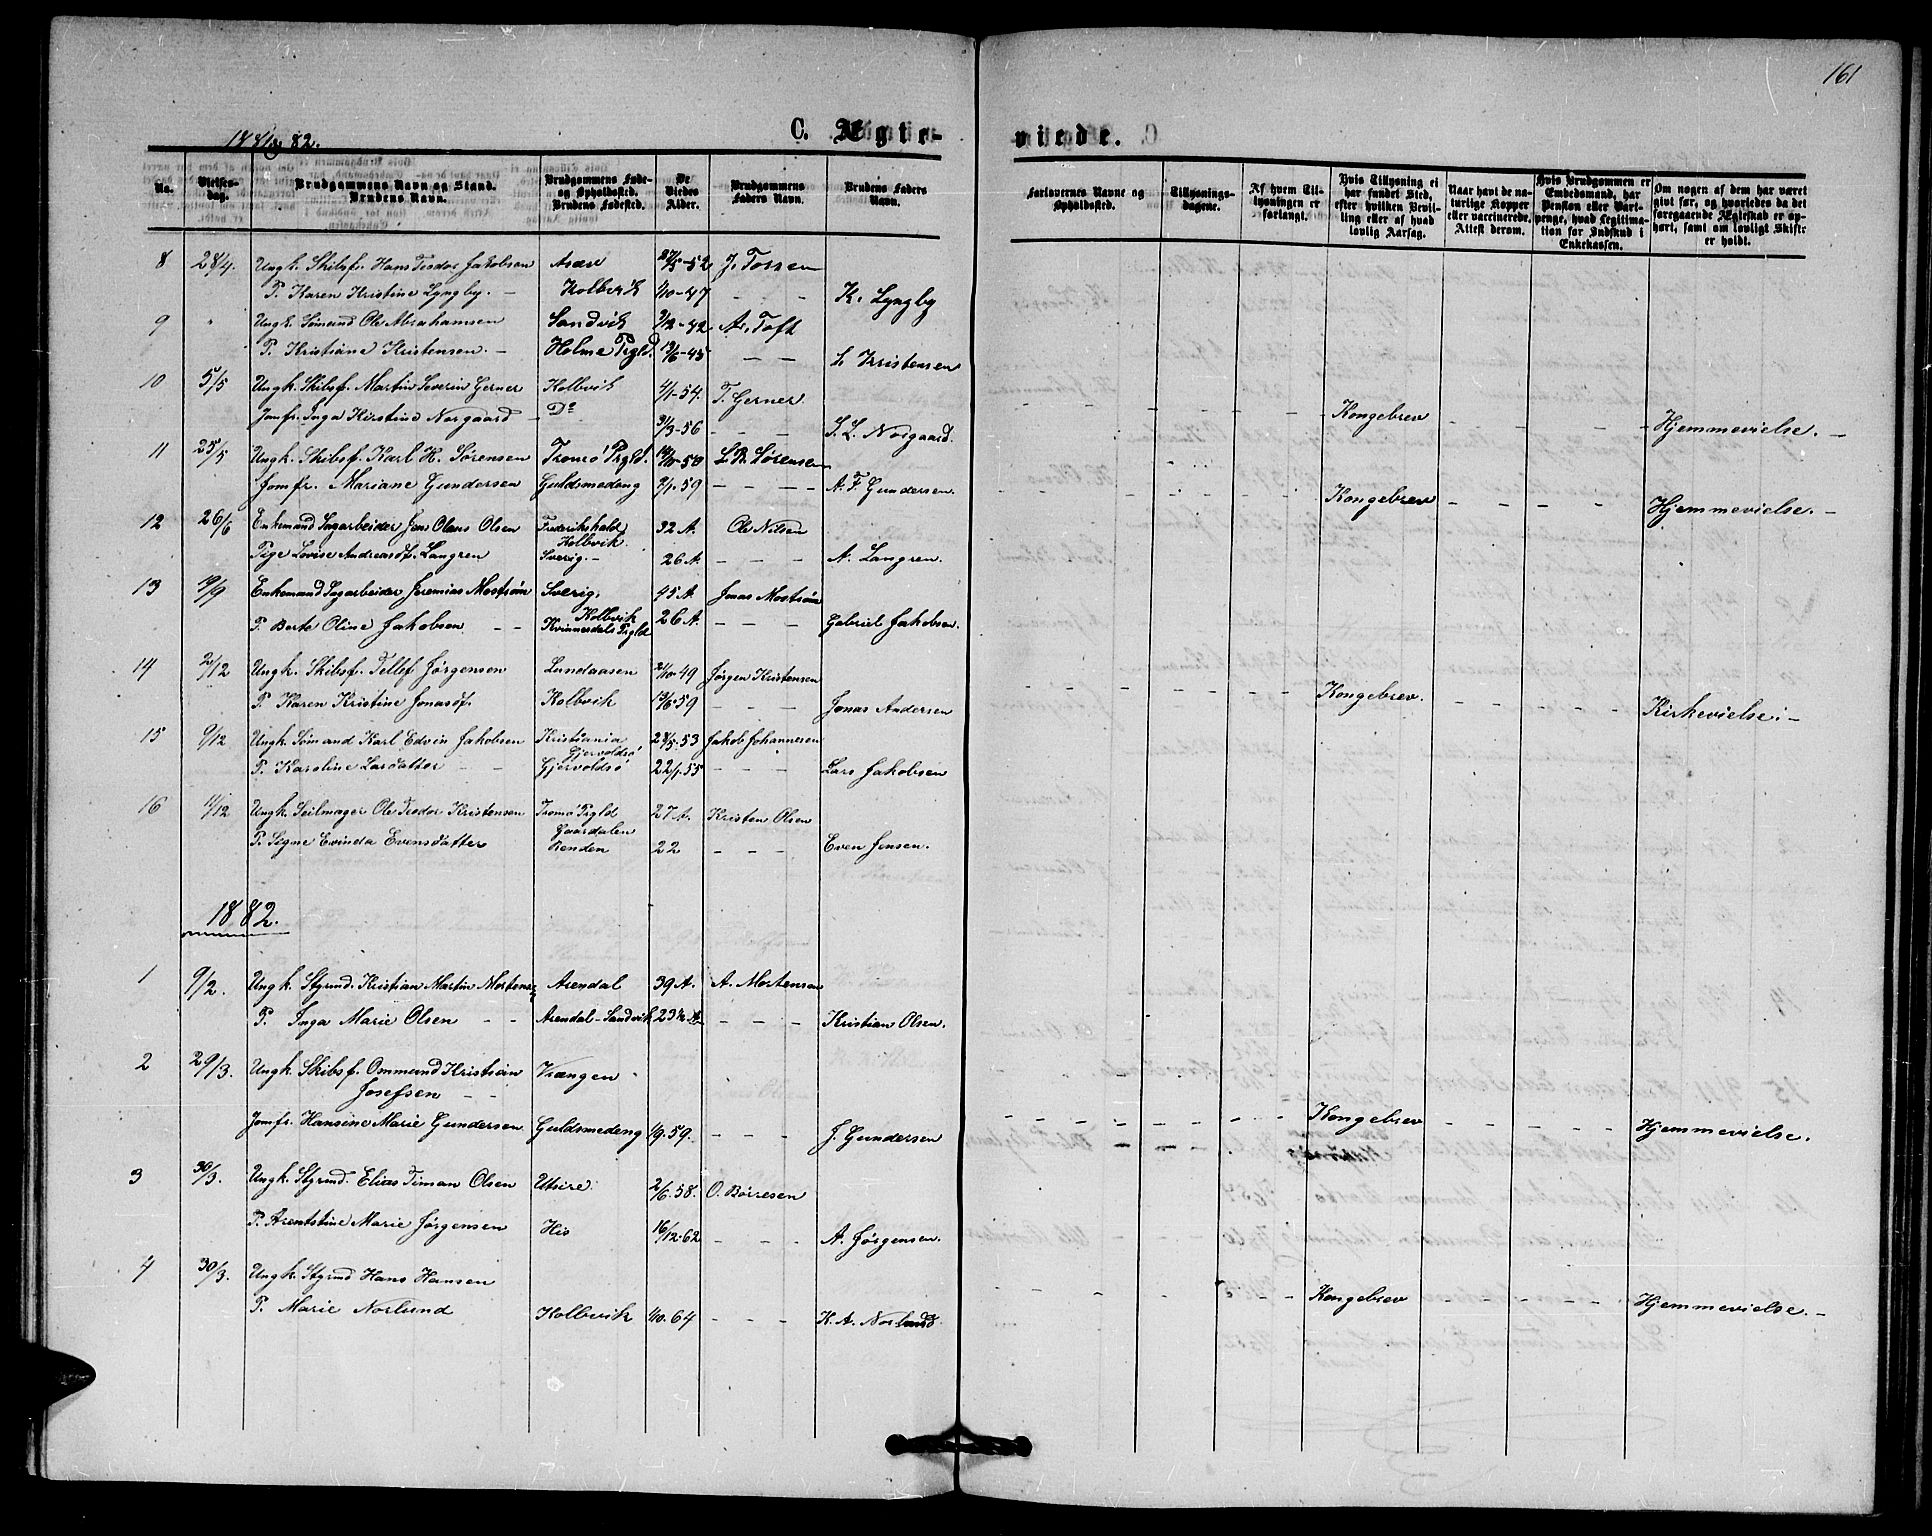 161
1881 og 82.
C. Ægte-
viede.
No.
Vielses-
dag.
Brudgommens Navn og Stand.
Brudens Navn.
Brudgommens Føde-
og Opholdssted.
Brudens Fødested.
De
Viedes
Alder.
Brudgommens
Faders Navn.
Brudens Faders
Navn.
Forlovernes Navne og
Opholdssted.
Tillysnings-
dagene.
Af hvem Til-
lysningen er
forlangt.
Hvis Tillysning ei
har fundet Sted,
efter hvilken Bevil-
ling eller af hvad
lovlig Aarsag.
Naar havt de na-
turlige Kopper
eller vaccinerede.
Attest derom.
Hvis Brudgommen er
Embedsmand, har
Pension eller Vart-
penge, hvad Legitima-
tion for Indskud i
Enkekassen.
Om nogen af dem har været
givt før, og hvorledes da det
foregaaende Ægteskab er op-
hørt, samt om lovligt Skifte
er holdt.
8 28/4. Ungk. Skibsf. Hans Teodor Jakobsen 27/5-52 J. Tossen
P. Karen Kristine Lyngby. - Kolbvik 1/10-47 - - K. Lyngby
9 " Ungk. Sømand Ole Abrahamsen Sandvik 3/12-42 A. Toft
P. Kristiane Kristensen. - Holme Prgld. 13/6-45 - - L. Kristensen
10 5/5 Ungk. Skibsf. Martin Severin Gerner Kolbvik 4/1-54. T. Gerner
Jomfr. Inga Kirstine Norgaard - Do 31/3-56 - - S. L. Norgaard. Kongebrev Hjemmevielse. -
11 25/5 Ungk. Skibsf. Karl H. Sørensen Tromø Prgld. 14/10-50 L. R. Sørensen
Jomfr. Mariane Gundersen Guldsmedeng 2/1-59 - - - A. F. Gundersen. Kongebrev Hjemmevielse. -
12 26/6 Enkemand Sagarbeider Jens Olaus Olsen Frederikshald 32 A. Ole Nilsen
Kolbvik.
Pige Lovise Andreasdf. Langren Sverig. - 26 A. - - - A. Langren.
13 19/9 Enkemand Sagarbeider Jeremias Mostrøm Sverig, 45 A. Jonas Mostrøm
Kolbvik
P. Berte Oline Jakobsen - - Kvinnesdals Prgld 26 A. - - - Gabriel Jakobsen.
14 2/12 Ungk. Skibsf. Tellef Jørgensen Lundaasen 21/10-49 Jørgen Kristensen
P. Karen Kristine Jonasdf. Kolbvik 13/6-59 - - - Jonas Andersen Kongebrev. Kirkevielse. -
15 9/12 Ungk. Sømand Karl Edvin Jakobsen Kristiania 28/5.53 Jakob Johannesen
Gjervoldsø
P. Karoline Larsdatter - - Gjervoldsø 22/1.55 - - - Lars Jakobsen
16 11/12 Ungk. Seilmager Ole Teodor Kristensen Tromø Prgld 27 A. Kristen Olsen
Gaardalen
P. Signe Evinda Evensdatter Renden 22 - - - Even Jensen.
1882.
1 9/2. Ungk. Styrmd. Kristian Martin Mortensen Arendal 39 A. A. Mortensen
P. Inga Marie Olsen - - Arendal-Sandvik 23 ½ A - - - Kristian Olsen.
2 29/3. Ungk. Skibsf. Ommund Kristian Vrængen
Josefsen - -
Jomfr. Hansine Marie Gundersen Guldsmedeng 1/9.59. - - - J. Gundersen Kongebrev Hjemmevielse.
3 30/3. Ungk. Styrmd. Elias Timan Olsen Utsire. 2/6.58. O. Børresen
P. Arentstine Marie Jørgensen His 16/12.62 - - - A. Jørgensen.
4 30/3. Ungk. Styrmd Hans Hansen
P. Marie Norlund Kolbvik 1/10.64 - - - K. A. Norlund Kongebrev Hjemmevielse. -